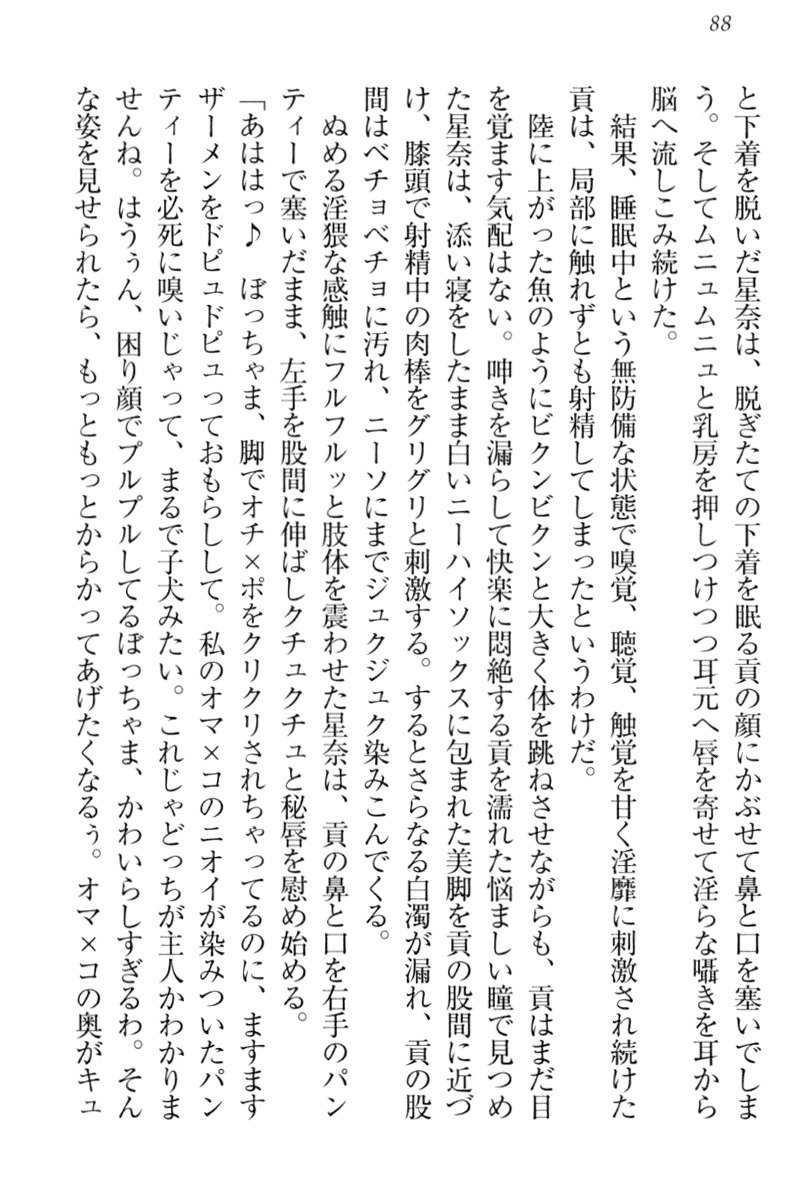 88
と下着を脱いだ星奈は、脱ぎたての下着を眠る貢の顔にかぶせて鼻と口を塞いでしま
う。そしてムニュムニュと乳房を押しつけつつ耳元へ唇を寄せて淫らな囁きを耳から
脳へ流しこみ続けた。
結果、睡眠中という無防備な状態で嗅覚、聴覚、触覚を甘く淫靡に刺激され続けた
貢は、局部に触れずとも射精してしまったというわけだ。
陸に上がった魚のようにビクンビクンと大きく体を跳ねさせながらも、貢はまだ目
を覚ます気配はない。呻きを漏らして快楽に悶絶する貢を濡れた悩ましい瞳で見つめ
た星奈は、添い寝をしたまま白いニーハイソックスに包まれた美脚を貢の股間に近づ
け、膝頭で射精中の肉棒をグリグリと刺激する。するとさらなる白濁が漏れ、貢の股
間はベチョベチョに汚れ、ニーソにまでジュクジュク染みこんでくる。
ぬめる淫猥な感触にフルフルッと肢体を震わせた星奈は、貢の鼻と口を右手のパン
ティーで塞いだまま、左手を股間に伸ばしクチュクチュと秘唇を慰め始める。
「あははっ♪　ぼっちゃま、脚でオチ×ポをクリクリされちゃってるのに、ますます
ザーメンをドピュドピュっておもらしして。私のオマ×コのニオイが染みついたパン
ティーを必死に嗅いじゃって、まるで子犬みたい。これじゃどっちが主人かわかりま
せんね。はうぅん、困り顔でプルプルしてるぼっちゃま、かわいらしすぎるわ。そん
な姿を見せられたら、もっともっとからかってあげたくなるぅ。オマ×コの奥がキュ